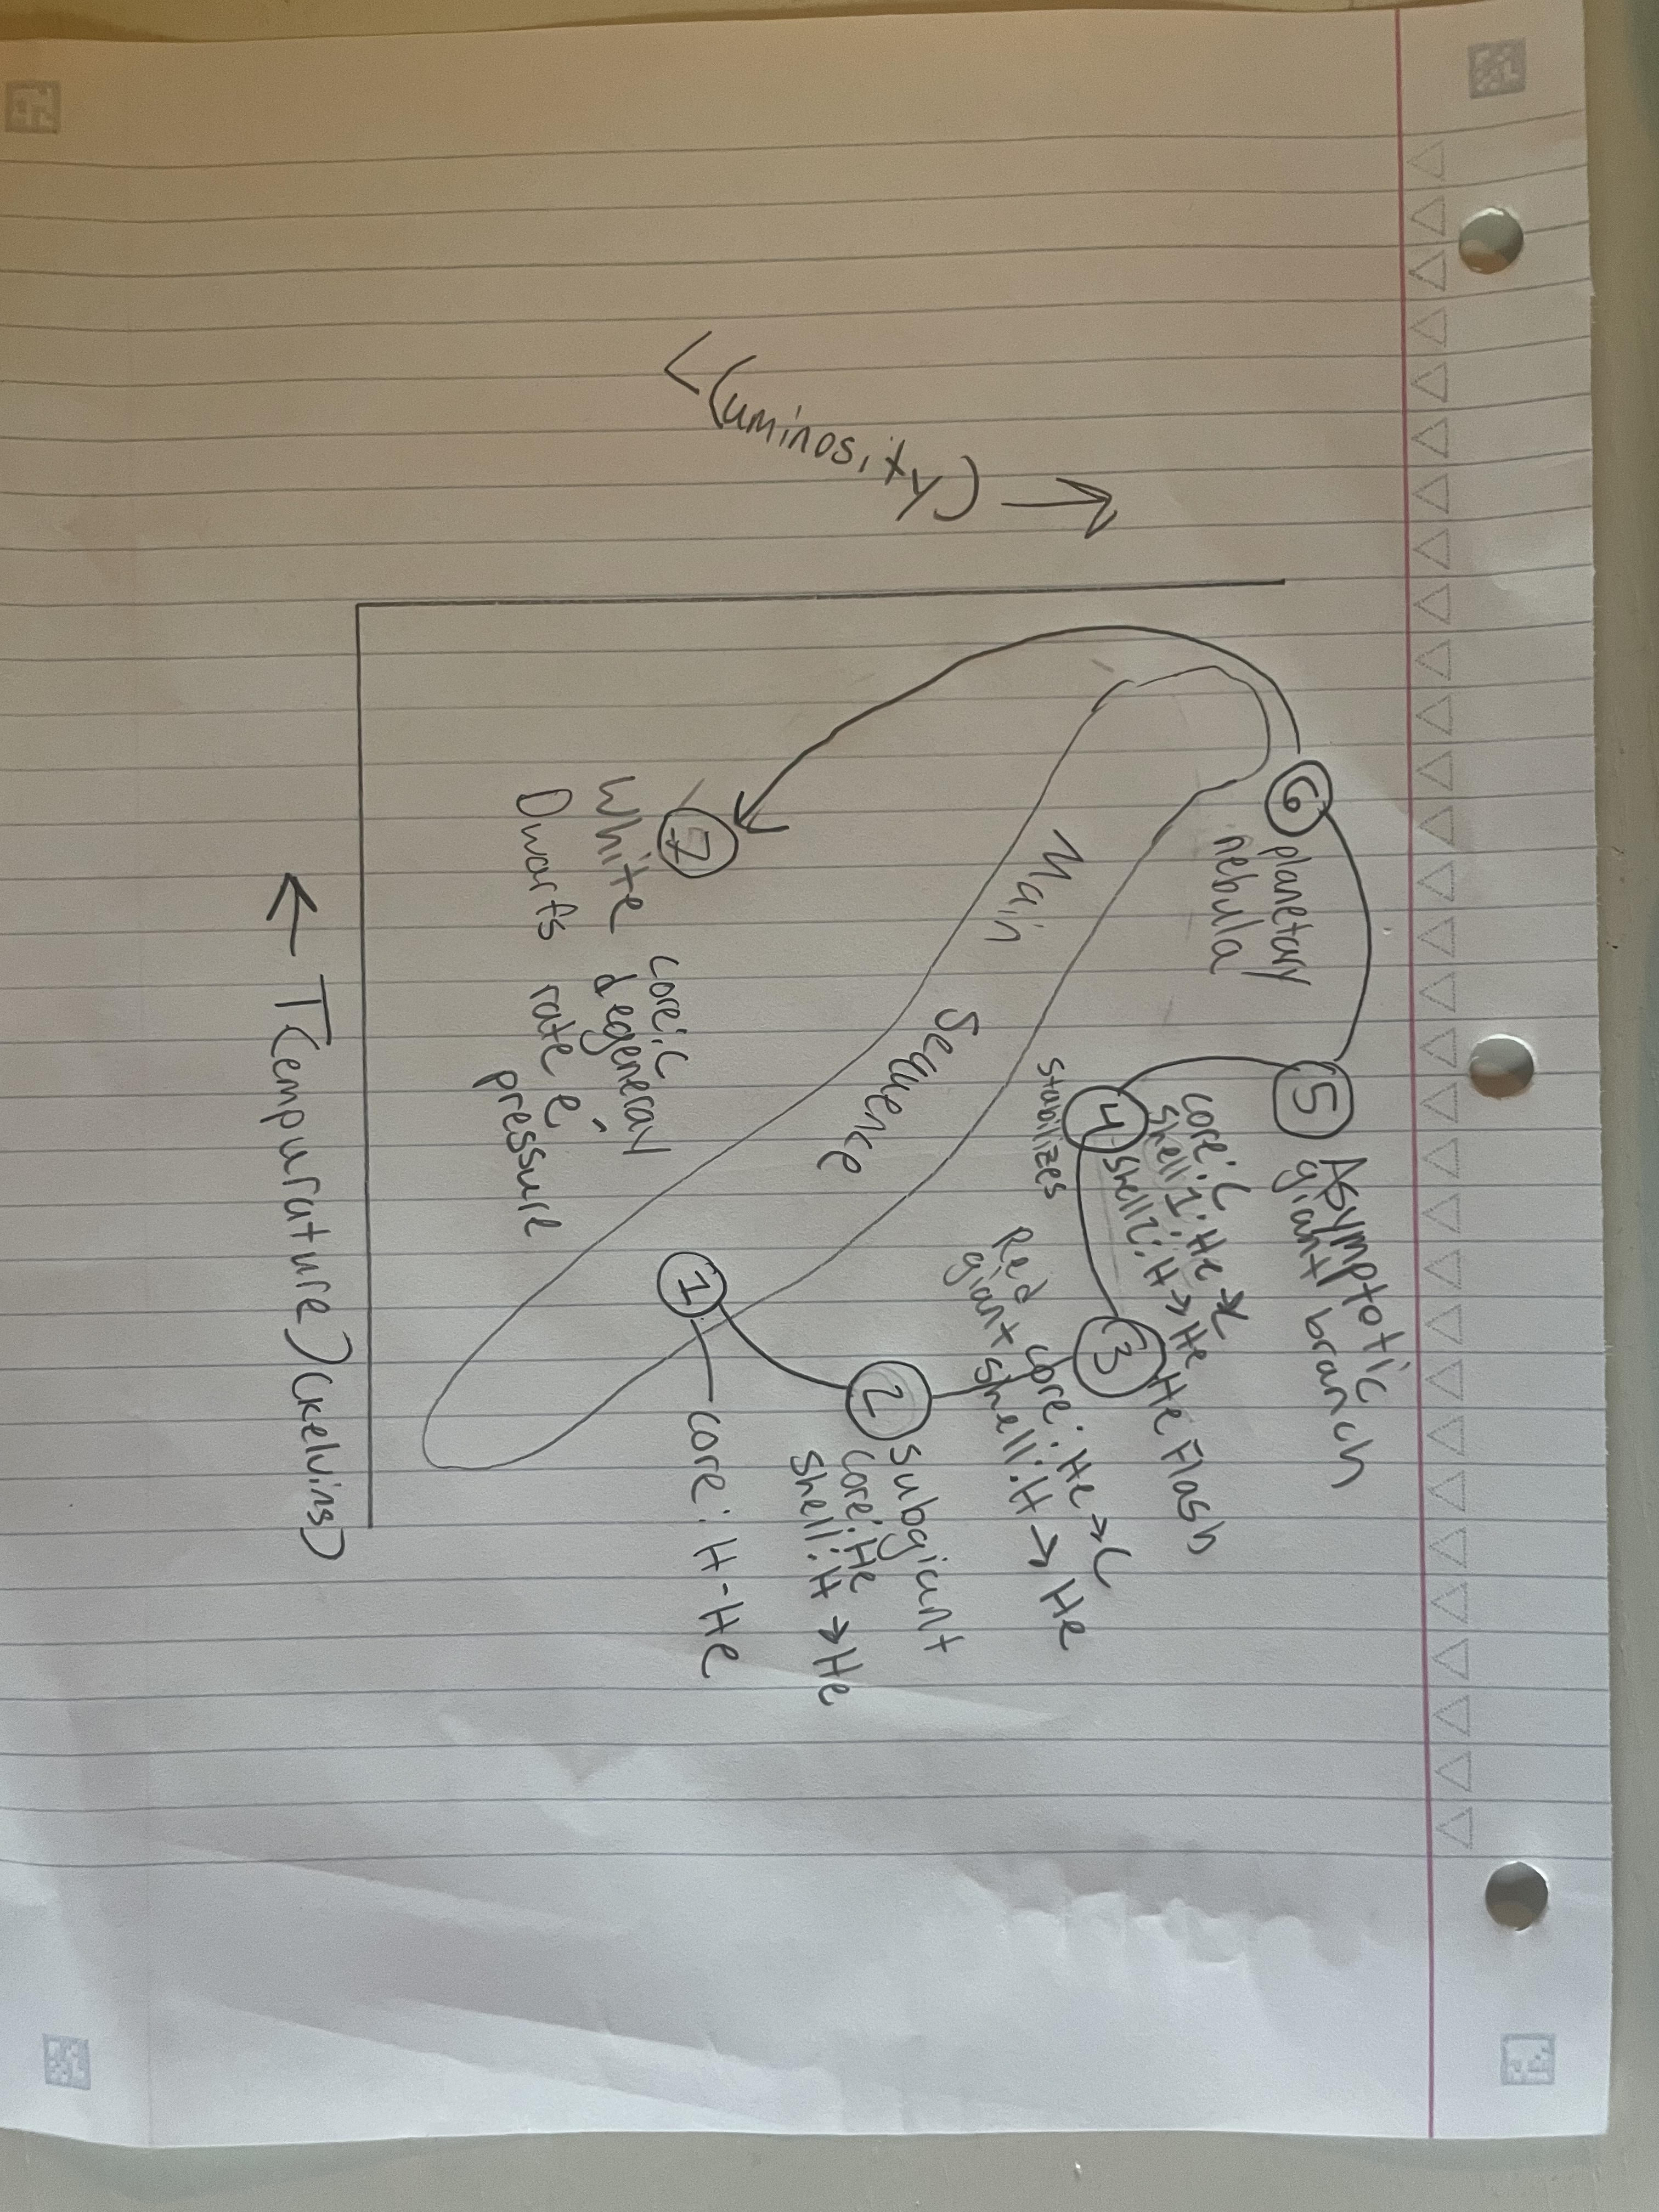 L(uminosity) →
⑥ planetary
nebula
⑤ Asymptotic
giant branch
core: C
shell 1: He → C
shell 2: H → He
④
stabilizes
③ He Flash
Red
giant
core: He → C
shell: H → He
Main
Sequence
② subgiant
core: He
shell: H → He
①
core: H - He
⑦
White
Dwarfs
core: C
rate e-
pressure
← T(empurature) (Kelvins)